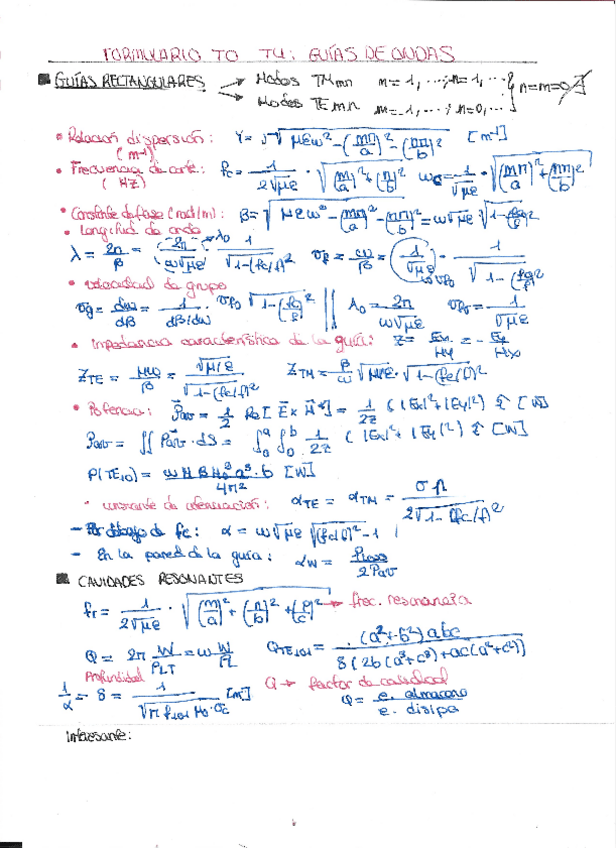 FORMULARIO TO T4: GUÍAS DE ONDAS
■ GUÍAS RECTANGULARES → Modos TMmn m=1, ...; n=1, ... } n=m=0 ∄
→ Modos TEmn m=1, ...; n=0, ...
• Relación dispersión: γ = √(με ω² − (mπ/a)² − (nπ/b)²) [m⁻¹]
(m⁻¹)
• Frecuencia de corte: fc = 1/(2√με) · √((m/a)² + (n/b)²) ωc = 1/√με · √((mπ/a)² + (nπ/b)²)
(Hz)
• Constante de fase (rad/m): β = √(μεω² − (mπ/a)² − (nπ/b)²) = ω√με √(1−(fc/f)²)
• Longitud de onda
λ = 2π/β = 2π/(ω√με) → λ0 · 1/√(1−(fc/f)²) vf = ω/β = (1/√με) → vf0 · 1/√(1−(fc/f)²)
• velocidad de grupo
vg = dω/dβ = 1/(dβ/dω) = vf0 √(1−(fc/f)²) || λ0 = 2π/(ω√με) vf0 = 1/√με
• impedancia característica de la guía: Z = Ex/Hy = − Ey/Hx
ZTE = μω/β = √(μ/ε)/√(1−(fc/f)²) ZTM = β/ω √(μ/ε) · √(1−(fc/f)²)
• Potencia: Pav = 1/2 Re[E × H*] = 1/2Z (|Ex|² + |Ey|²) ẑ [W]
Pav = ∬ Pav · dS = ∫₀ᵃ ∫₀ᵇ 1/2Z (|Ex|² + |Ey|²) ẑ [W]
P(TE10) = ω μ β H0² a³ · b / 4π² [W]
• constante de atenuación: αTE = αTM = σ η / 2√(1−(fc/f)²)
− Por debajo de fc: α = ω√με √((fc/f)² − 1)
− En la pared de la guía: αW = Ploss / 2Pav
■ CAVIDADES RESONANTES
fr = 1/(2√με) · √((m/a)² + (n/b)² + (p/c)²) → frec. resonancia
Q = 2π W/PLT = ω W/PL QTE101 = (a²+c²)abc / δ(2b(a³+c³)+ac(a²+c²))
Profundidad Q → factor de calidad
1/α = δ = 1/√(π f101 μ0 · σc) [m] Q = e. almacena / e. disipa
Interesante: